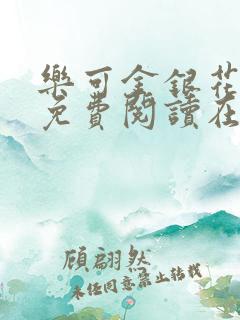 樂可金銀花
免費閱讀在
顧翩然
未經同意禁止轉載